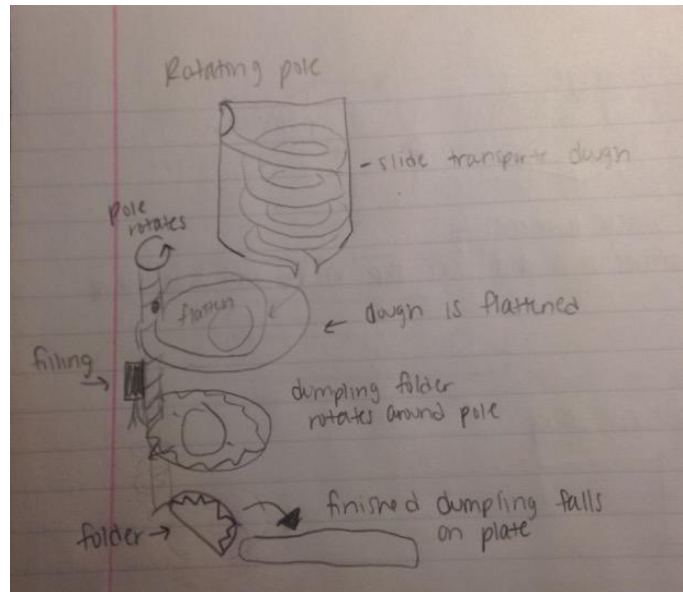 Rotating pole
- slide transporte dough
pole
rotates
flatten
← dough is flattened
filling
→
dumpling folder
rotates around pole
finished dumpling falls
on plate
folder →